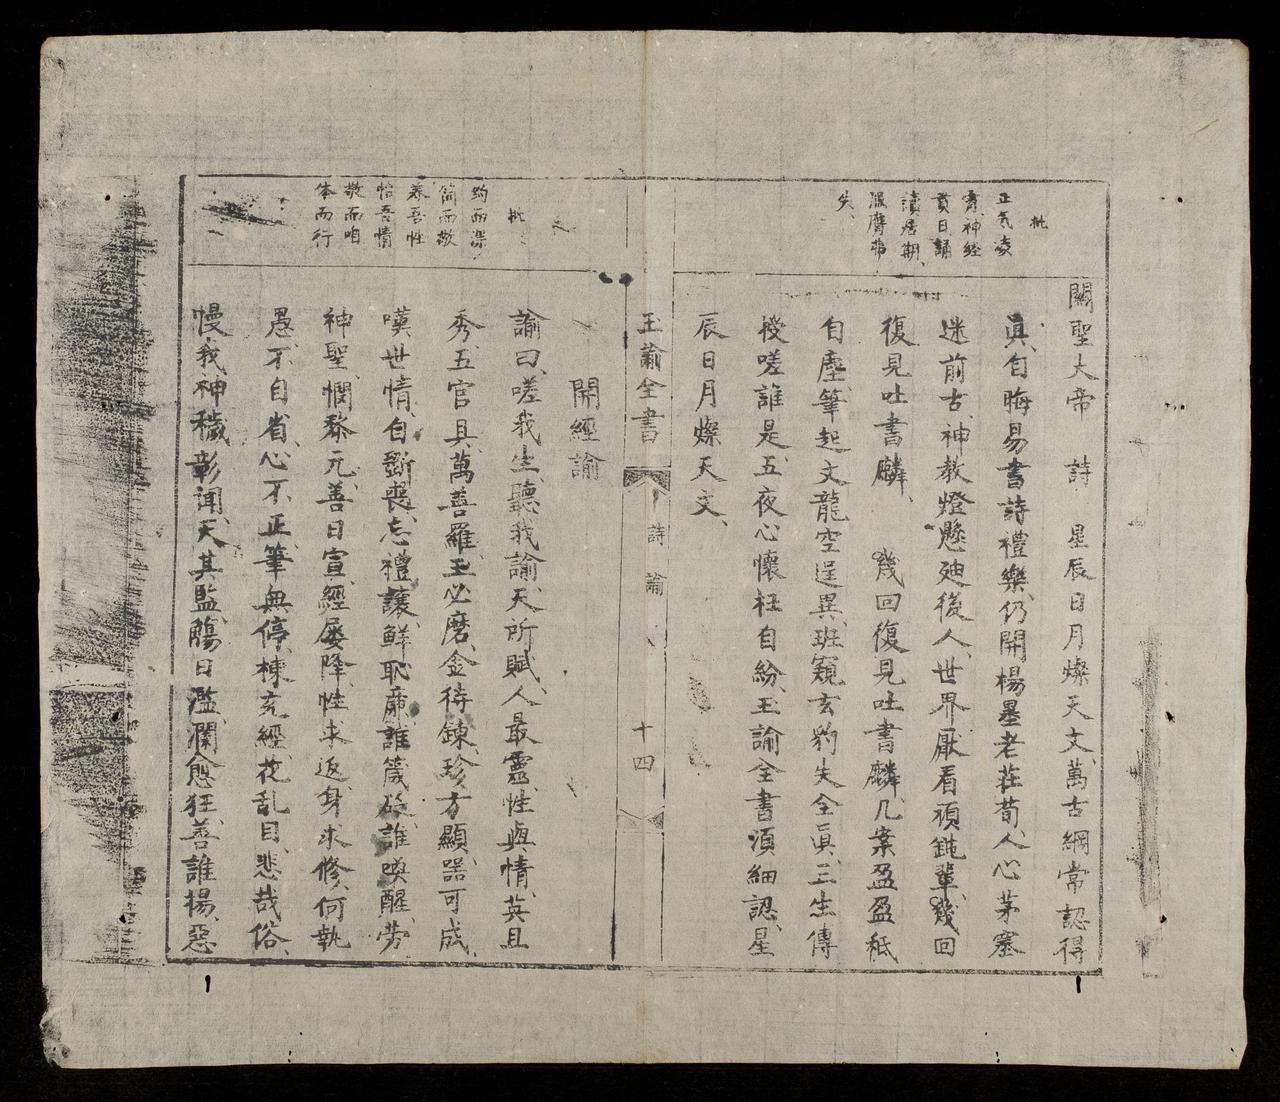 批
正气凌
霄神経
貴日誦
讀居期
服膺弗
失、
關聖大帝　詩　星辰日月燦天文、萬古綱常認得
眞、自晦易書詩禮樂、仍開楊墨老莊荀、人心茅塞
迷前古、神教燈懸廸後人、世界厭看頑鈍輩、幾回
復見吐書麟、　幾回復見吐書麟、几案盈盈紙
自塵、筆起文龍空逞異、班窺玄豹失全眞、三生傳
授嗟誰是、五夜心懷枉自紛、玉諭全書須細認、星
辰日月燦天文、
玉諭全書
詩
諭
十四
批
約而深
簡而敬
養吾性
怡吾情
敬而咱
体而行
開經諭
諭曰、嗟我生、聽我諭、天所賦、人最靈、性與情、英且
秀、五官具、萬善羅、玉必磨、金待鍊、珍方顯、器可成、
嘆世情、自斲喪、忘禮讓、鮮恥廉、誰箴砭、誰喚醒、勞
神聖、憫黎元、善日宣、經屡降、性求返、身求修、何執
愚、不自省、心不正、筆無停、棟充經、花乱目、悲哉俗、
慢我神、穢彰闻、天其監、觴日濫、瀾愈狂、善誰揚、惡